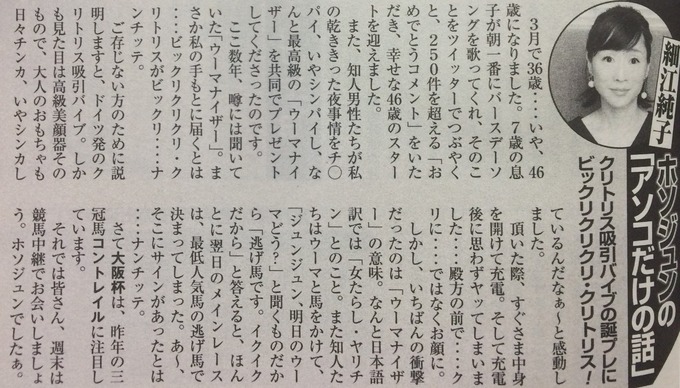 細江純子
ホソジュンの
「アソコだけの話」
クリトリス吸引バイブの誕プレに
ビックリクリクリ・クリトリス!
3月で36歳・・・いや、46
歳になりました。7歳の息
子が朝一番にバースデーソ
ングを歌ってくれ、そのこ
とをツイッターでつぶやく
と、250件を超える「お
めでとうコメント」をいた
だき、幸せな46歳のスター
トを迎えました。
また、知人男性たちが私
の乾ききった夜事情をチ〇
パイ、いやシンパイし、な
んと最高級の「ウーマナイ
ザー」を共同でプレゼント
してくださったのです。
ここ数年、噂には聞いて
いた「ウーマナイザー」。ま
さか私の手もとに届くとは
・・・ビックリクリクリ・ク
リトリスがビックリ・・・ナ
ンチッテ。
ご存じない方のために説
明しますと、ドイツ発のク
リトリス吸引バイブ。しか
も見た目は高級美顔器その
もので、大人のおもちゃも
日々チンカ、いやシンカし
ているんだなぁ〜と感動し
ました。
頂いた際、すぐさま中身
を開けて充電。そして充電
後に思わずヤッてしまいま
した・・・殿方の前で・・・ク
リに・・・ではなくお顔に。
しかし、いちばんの衝撃
だったのは「ウーマナイザ
ー」の意味。なんと日本語
訳では「女たらし・ヤリチ
ン」とのこと。また知人た
ちはウーマと馬をかけて、
「ジュンジュン、明日のウー
マどう?」と聞くものだか
ら「逃げ馬です。イクイク
だから」と答えると、ほん
とに翌日のメインレース
は、最低人気馬の逃げ馬で
決まってしまった。あ〜、
そこにサインがあったとは
・・・ナンチッテ。
さて大阪杯は、昨年の三
冠馬コントレイルに注目し
ています。
それでは皆さん、週末は
競馬中継でお会いしましょ
う。ホソジュンでしたぁ。